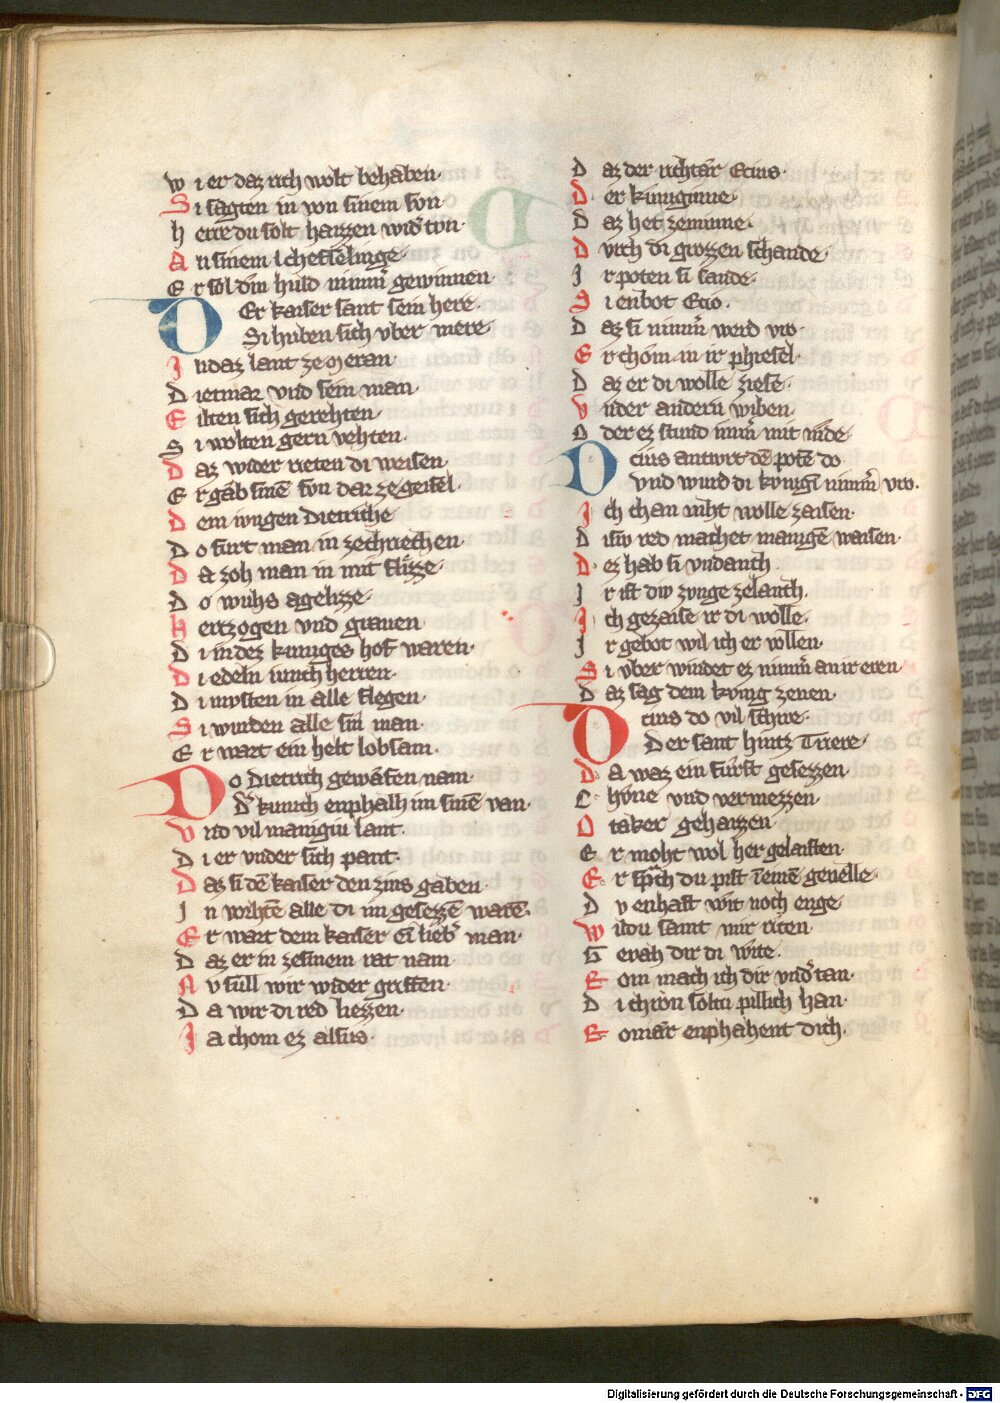 W i er daz rich wolt behaben·
S i sagten in von sinem son·
h erre du solt haizzen wids tůn·
A n sinem lchesselinge·
E r sol diw huld nimm̄ gewinnen·
D Er kaiser sant sein here·
Si huben sich vber mere·
J n daz lant ze Meran·
D ietmar vnd sein man·
E ilten sich gerehten·
S i wolten gern vehten·
D az wider rieten di weisen·
E r gab sinē son dar ze geisel·
D em iungen Dietriche·
D o furt man in ze chriechen·
D a zoh man in mit flizze·
D o wuhs agelizze·
H ertzogen vnd grauen
D i in dez kuniges hof waren·
D i edeln iunchherren·
D i mvsten in alle flegen·
S i wurden alle sin man·
E r wart ein helt lobsam·
D o Dietrich gewafen nam·
Dͬ kunich enphalh im sinē van·
V nd vil manigiu lant·
D i er vnder sich pant·
D az si dē kaiser den zins gaben·
J n vorhtē alle di im gesezzē warē·
E r wart dem kaiser ei liebͬ man·
D az er in ze sinem rat nam
N v sull wir wider griffen·
D a wir di red liezzen·
J a chom ez alsus·
D az der richtær Ecius·
D er kuniginne·
D az het ze minne·
D vrch di grozzen schande·
J r poten si sande·
S i enbot Ecio·
D az si nimm̄ werd vro·
E r chom in ir phiesel·
D az er di wolle ziese·
V nder andern wiben·
O der ez stund imm̄ mit nide·
E cius antwrt dē potē do
vnd wurd di kvnigī nimm̄ vro·
J ch chan niht wolle zaisen·
D isiv red machet manigē waisen·
D ez hab si vndanch·
J r ist div zvnge ze lanch·
J ch gezaise ir di wolle·
J r gebot wil ich er vollen·
S i vber windet ez nimm̄ an ir eren·
D az sag dem kvnig zenen·
E cius do vil schire·
Der sant hintz Triere·
D a waz ein fürst gesezzen·
C hvne vnd vermezzen·
O taker gehaizzen·
E r moht wol her gelaisten·
E r sprach du pist ī einē geuelle·
D v enhast wit noch enge
W ildu samt mir riten·
G erah dir di wite·
R om mach ich dir vndͬtan·
D i chron soltu pillich han·
R omær enphahent dich·
Digitalisierung gefördert durch die Deutsche Forschungsgemeinschaft - DFG